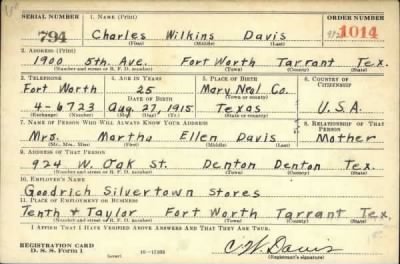 SERIAL NUMBER 1. NAME (Print) ORDER NUMBER
794 Charles Wilkins Davis 1014
(First) (Middle) (Last)
2. ADDRESS (Print)
1900 5th Ave. Fort Worth Tarrant Tex.
(Number and street or R. F. D. number) (Town) (County) (State)
3. TELEPHONE 4. AGE IN YEARS 5. PLACE OF BIRTH 6. COUNTRY OF CITIZENSHIP
Fort Worth 25 Mary Neal Co.
DATE OF BIRTH (Town or county)
4-6723 Aug. 27, 1915 Texas U.S.A.
(Exchange) (Number) (Mo.) (Day) (Yr.) (State or country)
7. NAME OF PERSON WHO WILL ALWAYS KNOW YOUR ADDRESS 8. RELATIONSHIP OF THAT PERSON
Mrs. Martha Ellen Davis Mother
(Mr., Mrs., Miss) (First) (Middle) (Last)
9. ADDRESS OF THAT PERSON
924 W. Oak St. Denton Denton Tex.
(Number and street or R. F. D. number) (Town) (County) (State)
10. EMPLOYER'S NAME
Goodrich Silvertown Stores
11. PLACE OF EMPLOYMENT OR BUSINESS
Tenth & Taylor Fort Worth Tarrant Tex.
(Number and street or R. F. D. number) (Town) (County) (State)
I AFFIRM THAT I HAVE VERIFIED ABOVE ANSWERS AND THAT THEY ARE TRUE.
REGISTRATION CARD
D. S. S. Form 1 16-17105 C. W. Davis
(Registrant's signature)